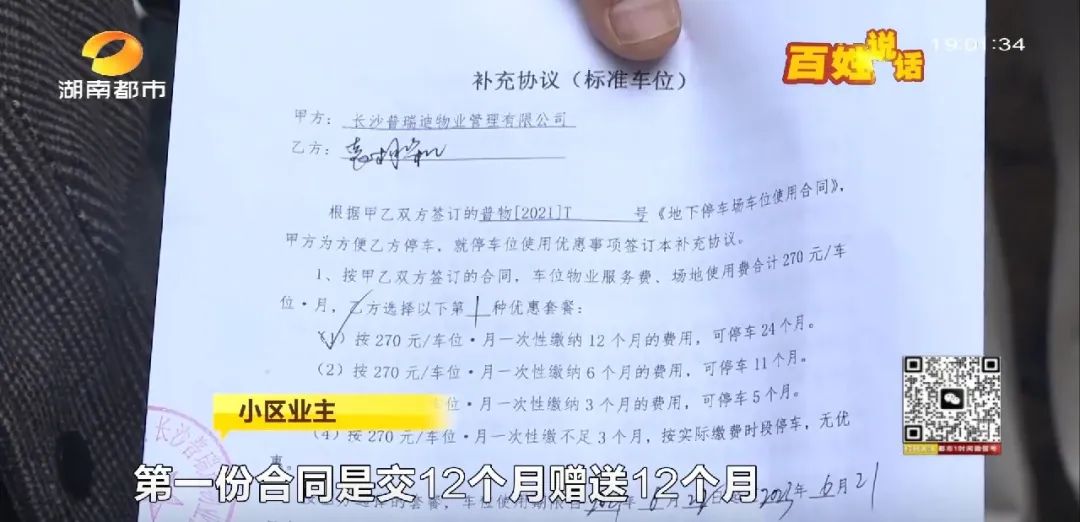 湖南都市
百姓说话
19:01:34
补充协议（标准车位）
甲方：长沙普瑞迪物业管理有限公司
乙方：
根据甲乙双方签订的普物[2021]T 号《地下停车场车位使用合同》，
甲方为方便乙方停车，就停车位使用优惠事项签订本补充协议。
1、按甲乙双方签订的合同，车位物业服务费、场地使用费合计270元/车
位·月，乙方选择以下第 种优惠套餐：
（1）按270元/车位·月一次性缴纳12个月的费用，可停车24个月。
（2）按270元/车位·月一次性缴纳6个月的费用，可停车11个月。
位·月一次性缴纳3个月的费用，可停车5个月。
（4）按270元/车位·月一次性缴不足3个月，按实际缴费时段停车，无优
惠。
小区业主
第一份合同是交12个月赠送12个月
年6月21
长沙普瑞
都市1时间微信号